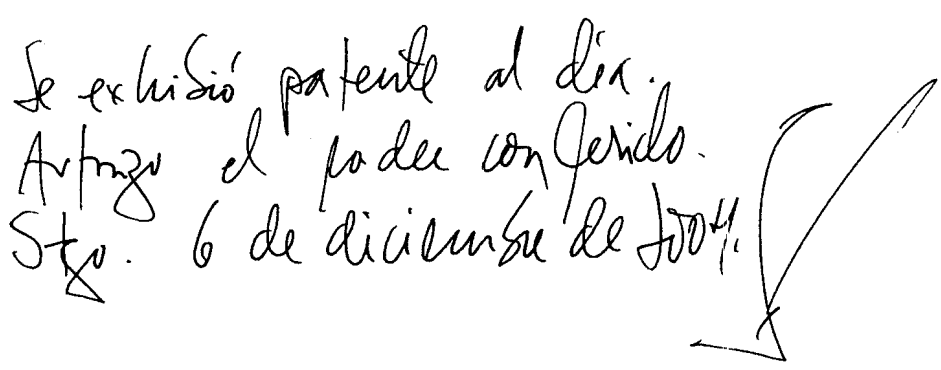 Se exhibió patente al día.
Autorizo el poder conferido.
Stgo. 6 de diciembre de 2004.